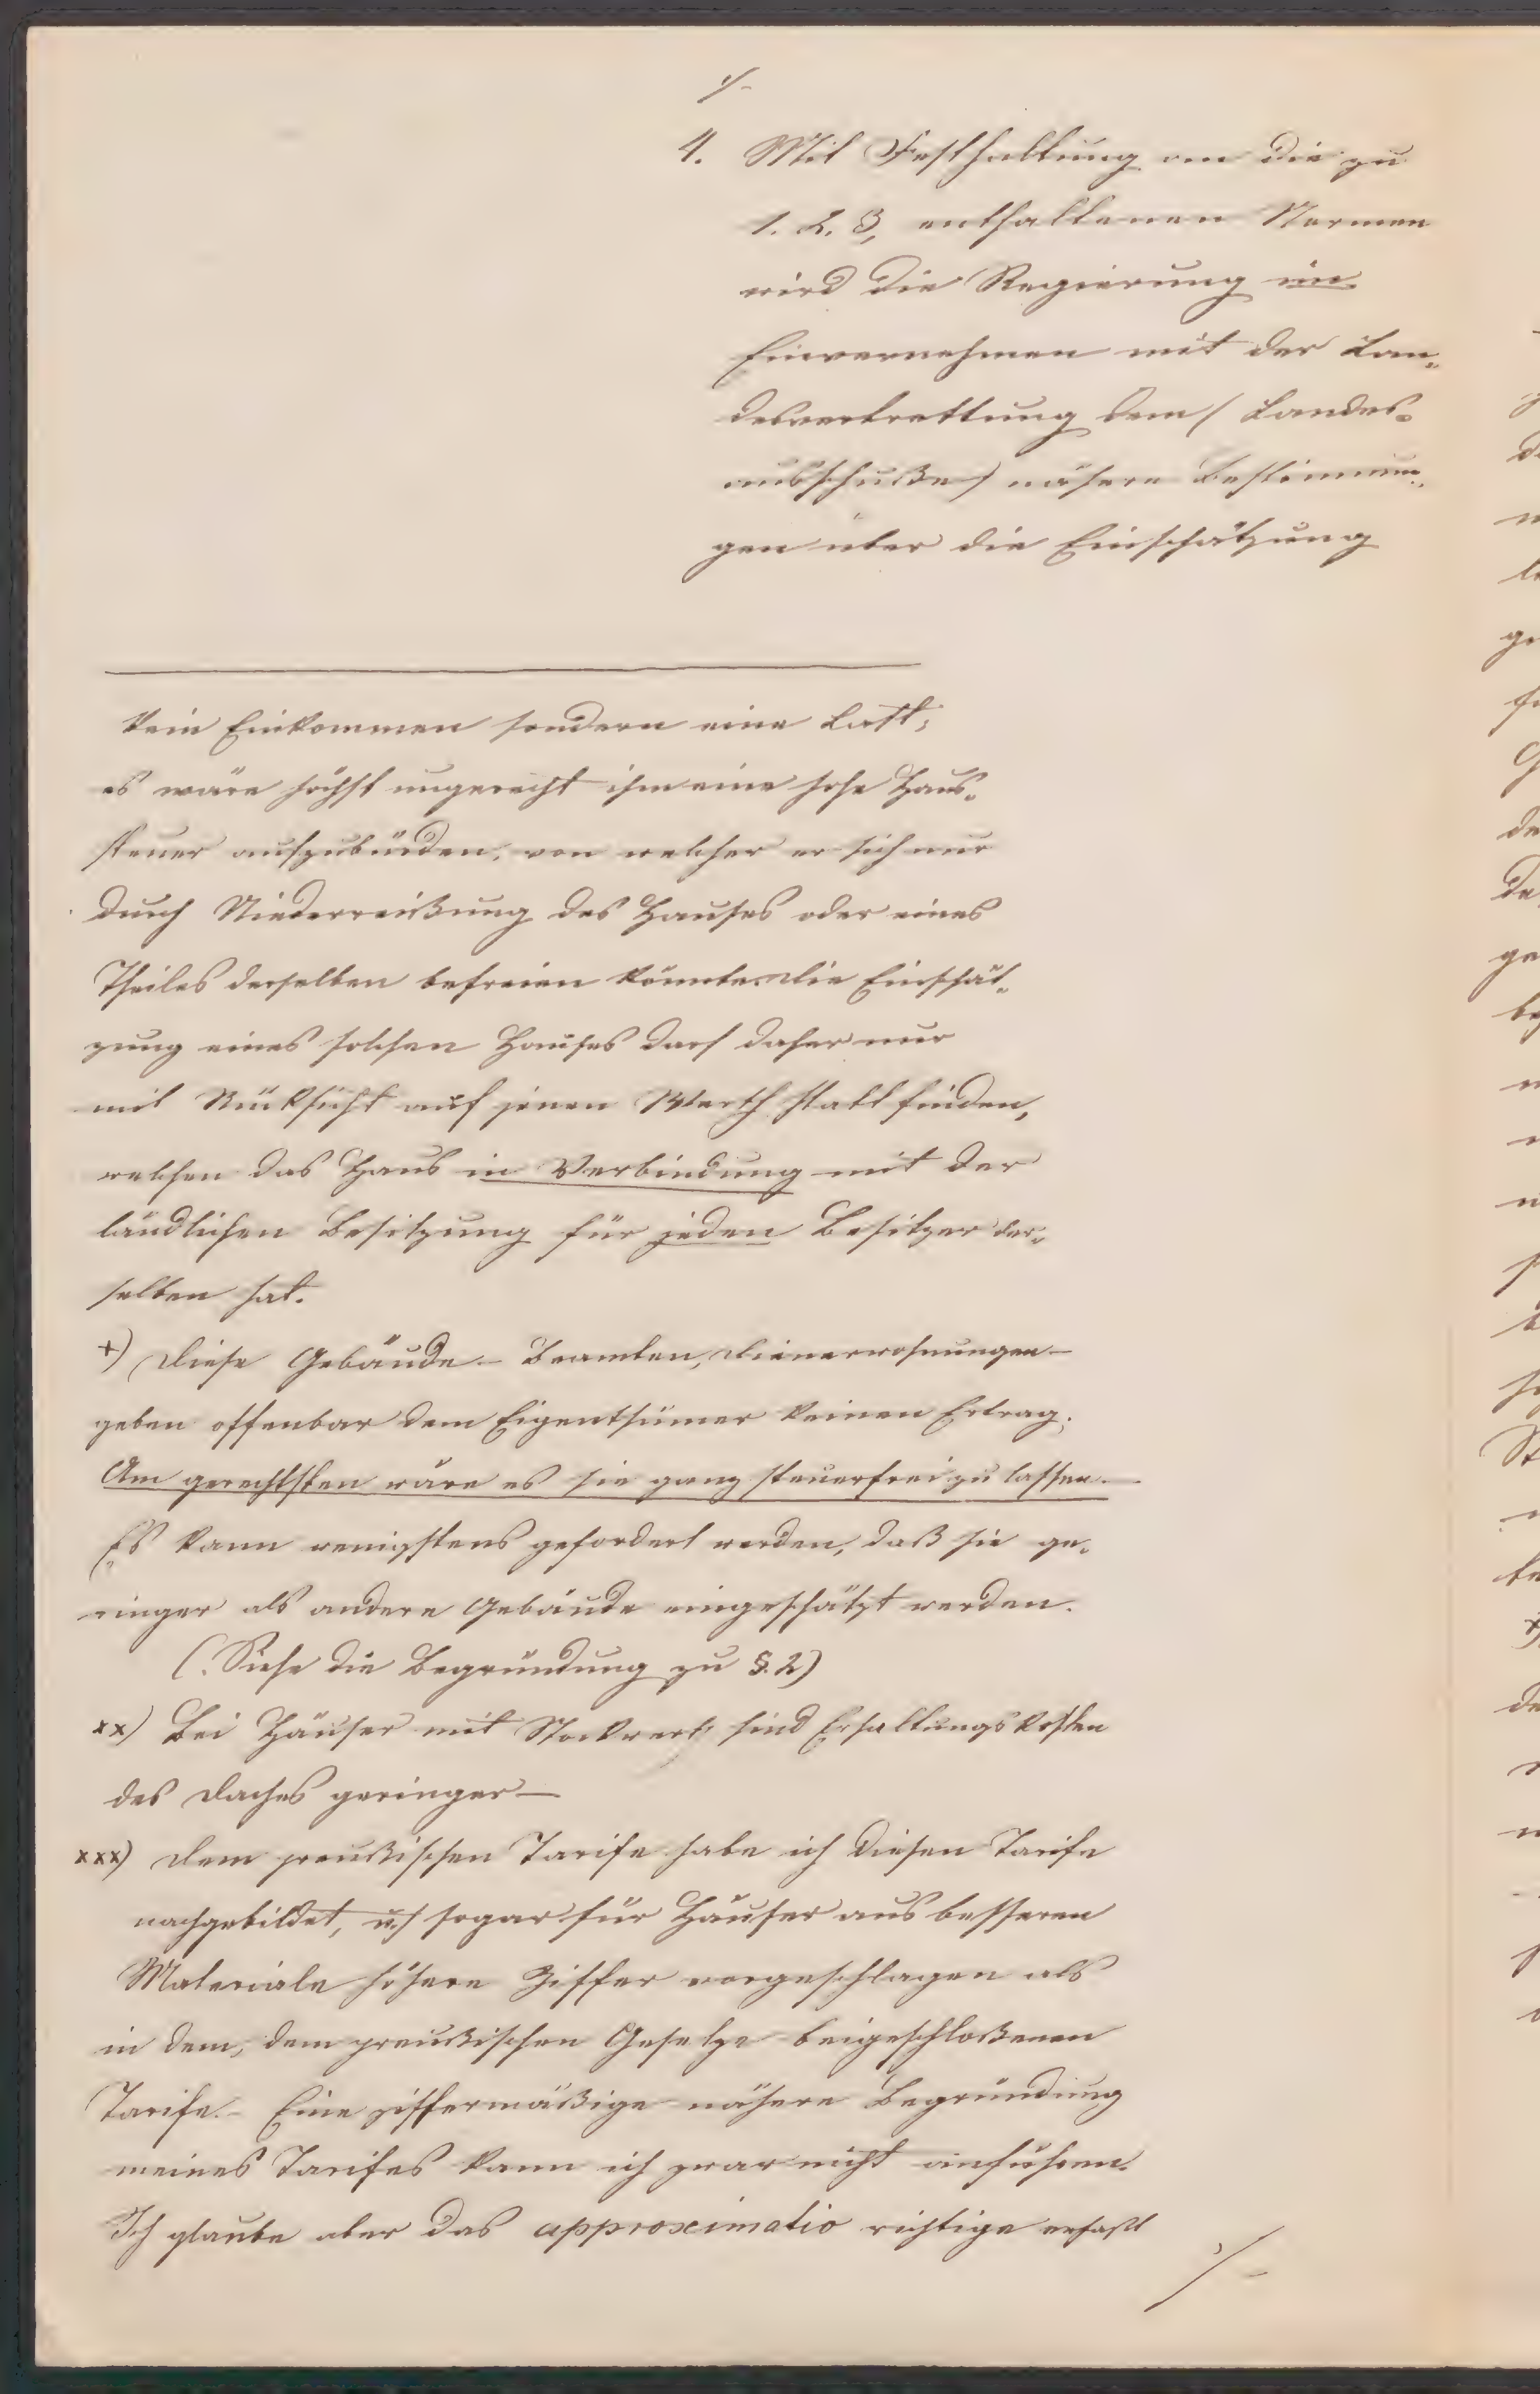 ./-
4. Mit Festhaltung an die zu
1. 2. 3, enthaltenen Normen
wird die Regierung im
Einvernehmen mit der Lan-
desvertrettung dem / Landes-
ausschuße / nähere Bestimmun-
gen über die Einschätzung
kein Einkommen sondern eine Last;
es wäre höchst ungerecht ihm eine hohe Haus-
steuer aufzubürden, von welcher er sich nur
durch Niederreißung des Hauses oder eines
Theiles desselben befreien könnte. Die Einschät-
zung eines solchen Hauses darf daher nur
mit Rücksicht auf jenen Werth statt finden,
welchen das Haus in Verbindung mit der
ländlichen Besitzung für jeden Besitzer der-
selben hat.
+) Diese Gebäude - Beamten, Dienerwohnungen -
geben offenbar dem Eigenthümer keinen Ertrag.
Am gerechtsten wäre es sie ganz steuerfrei zu lassen. -
Es kann wenigstens gefordert werden, daß sie ge-
ringer als andere Gebäude eingeschätzt werden.
(. Siehe die Begründung zu §. 2)
xx) Bei Häuser mit Stockwerk sind Erhaltungskosten
des Daches geringer -
xxx) Dem preußischen Tarife habe ich diesen Tarife
nachgebildet, u. / sogar für Häuser aus besseren
Materiale höhere Ziffer vorgeschlagen als
in dem, dem preußischen Gesetze beigeschloßenen
Tarife. - Eine ziffermäßige nähere Begründung
meines Tarifes kann ich zwar nicht anführen.
Ich glaube aber das approximatio richtige erfaßt
./-